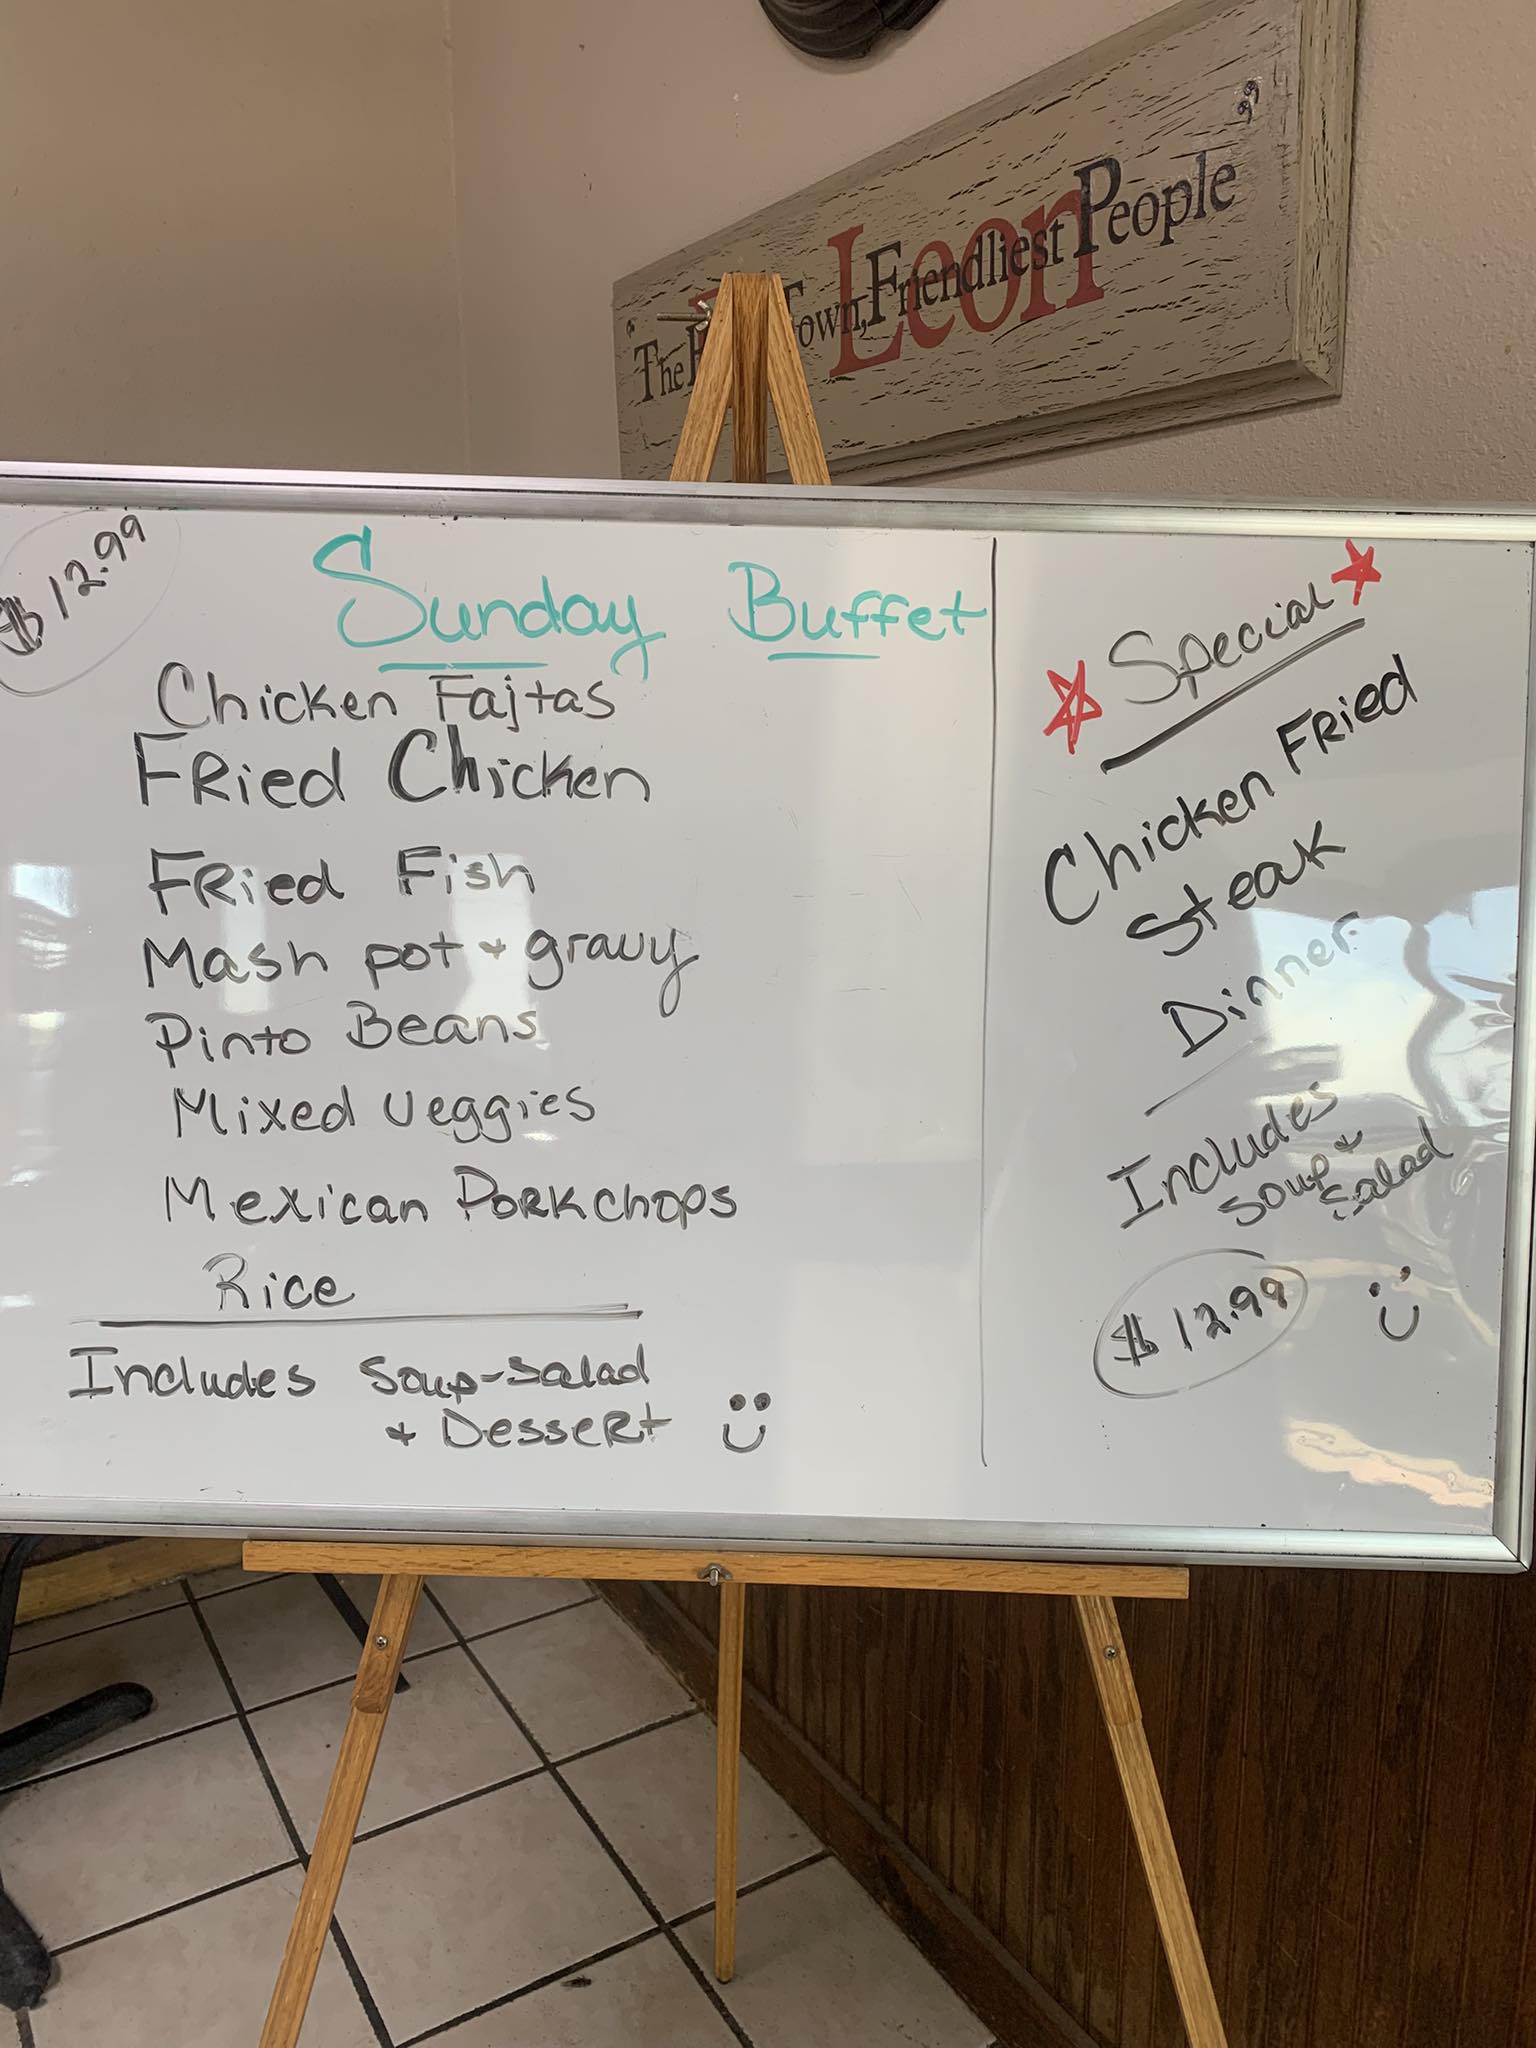 Leon
"The Town, Friendliest People"
$12.99
Sunday Buffet
Chicken Fajtas
FRied Chicken
FRied Fish
Mash pot & gravy
Pinto Beans
Mixed veggies
Mexican PoRKchops
Rice
Includes Soup-Salad
& DesseRt
Special
Chicken FRied
Steak
Dinner
Includes
soup &
salad
$12.99